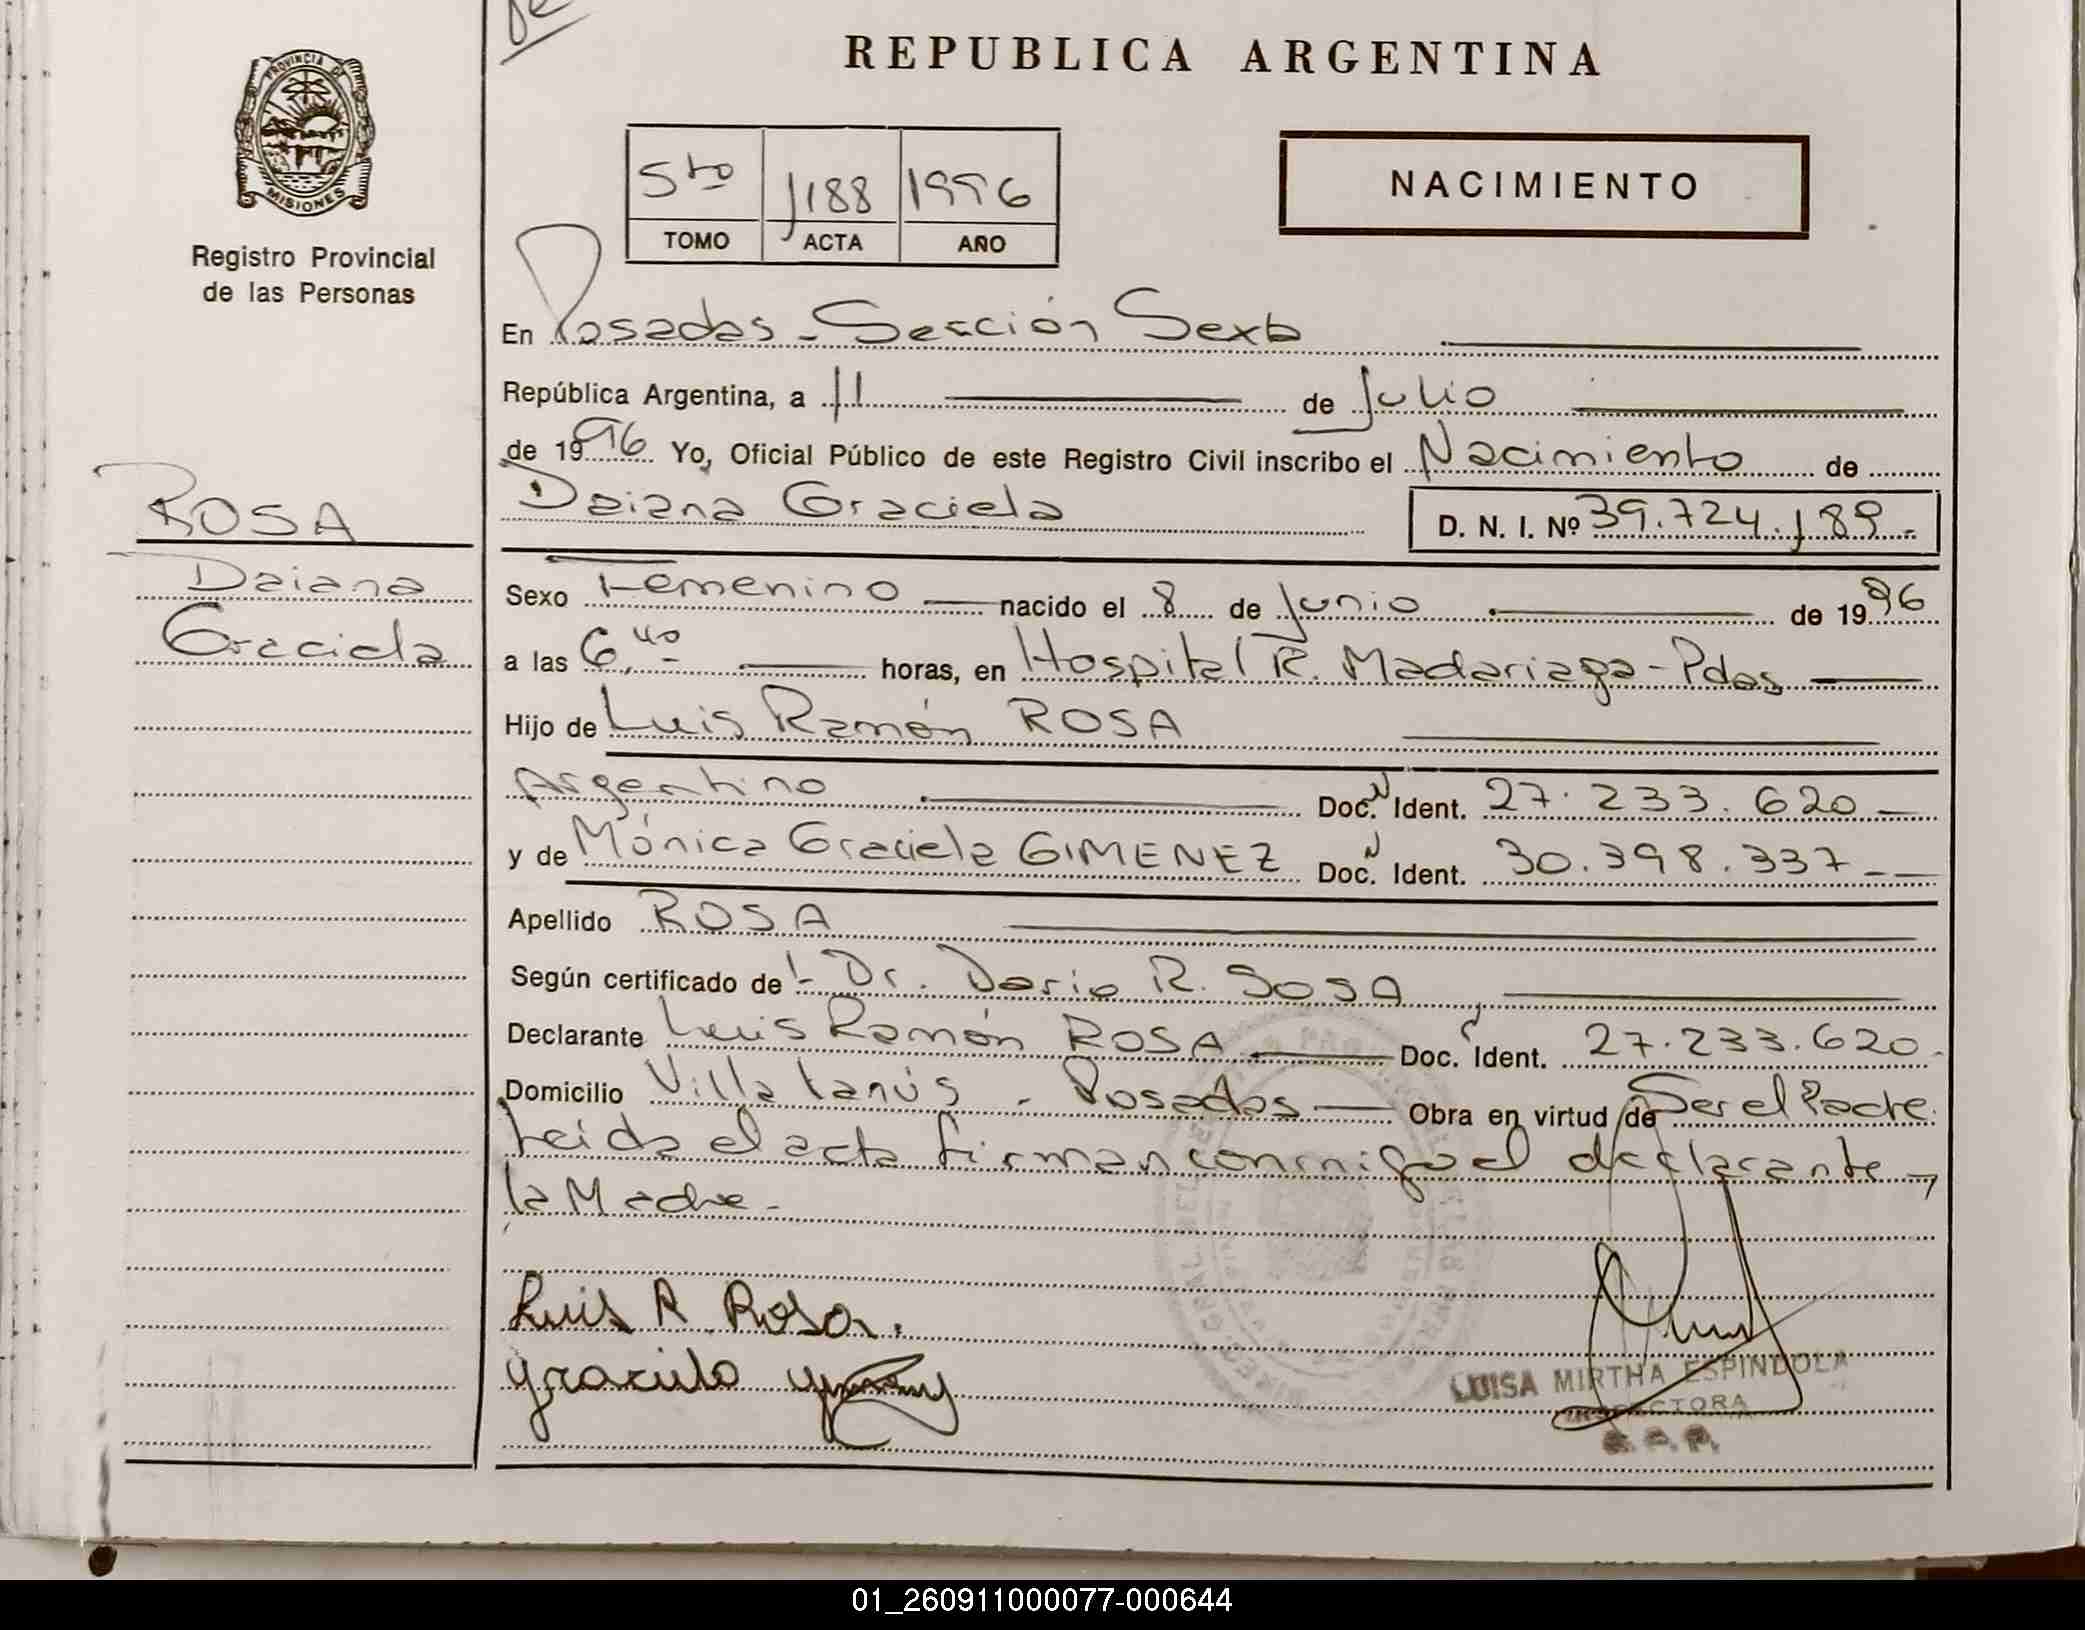 REPUBLICA ARGENTINA
PROVINCIA DE
MISIONES
Registro Provincial
de las Personas
5to 1188 1996
TOMO ACTA AÑO
NACIMIENTO
En Posadas - Sección Sexta
República Argentina, a 11 de Julio
de 1996 Yo, Oficial Público de este Registro Civil inscribo el Nacimiento de
Daiana Graciela D. N. I. Nº 39.724.189.-
ROSA
Daiana
Graciela
Sexo Femenino nacido el 8 de Junio de 1996
a las 6,40 horas, en Hospital R. Madariaga - Pdas
Hijo de Luis Ramón ROSA
Argentino Doc. Ident. 27.233.620
y de Mónica Graciela GIMENEZ Doc. Ident. 30.398.337
Apellido ROSA
Según certificado de l- Dr. Dario R. SOSA
Declarante Luis Ramón ROSA Doc. Ident. 27.233.620.
Domicilio Villa Lanús - Posadas Obra en virtud de Ser el Padre.
Leida el acta firman conmigo el declarante y
la Madre.-
Luis R Rosa.
LUISA MIRTHA ESPINDOLA
INSPECTORA
R. P. P.
01_260911000077-000644